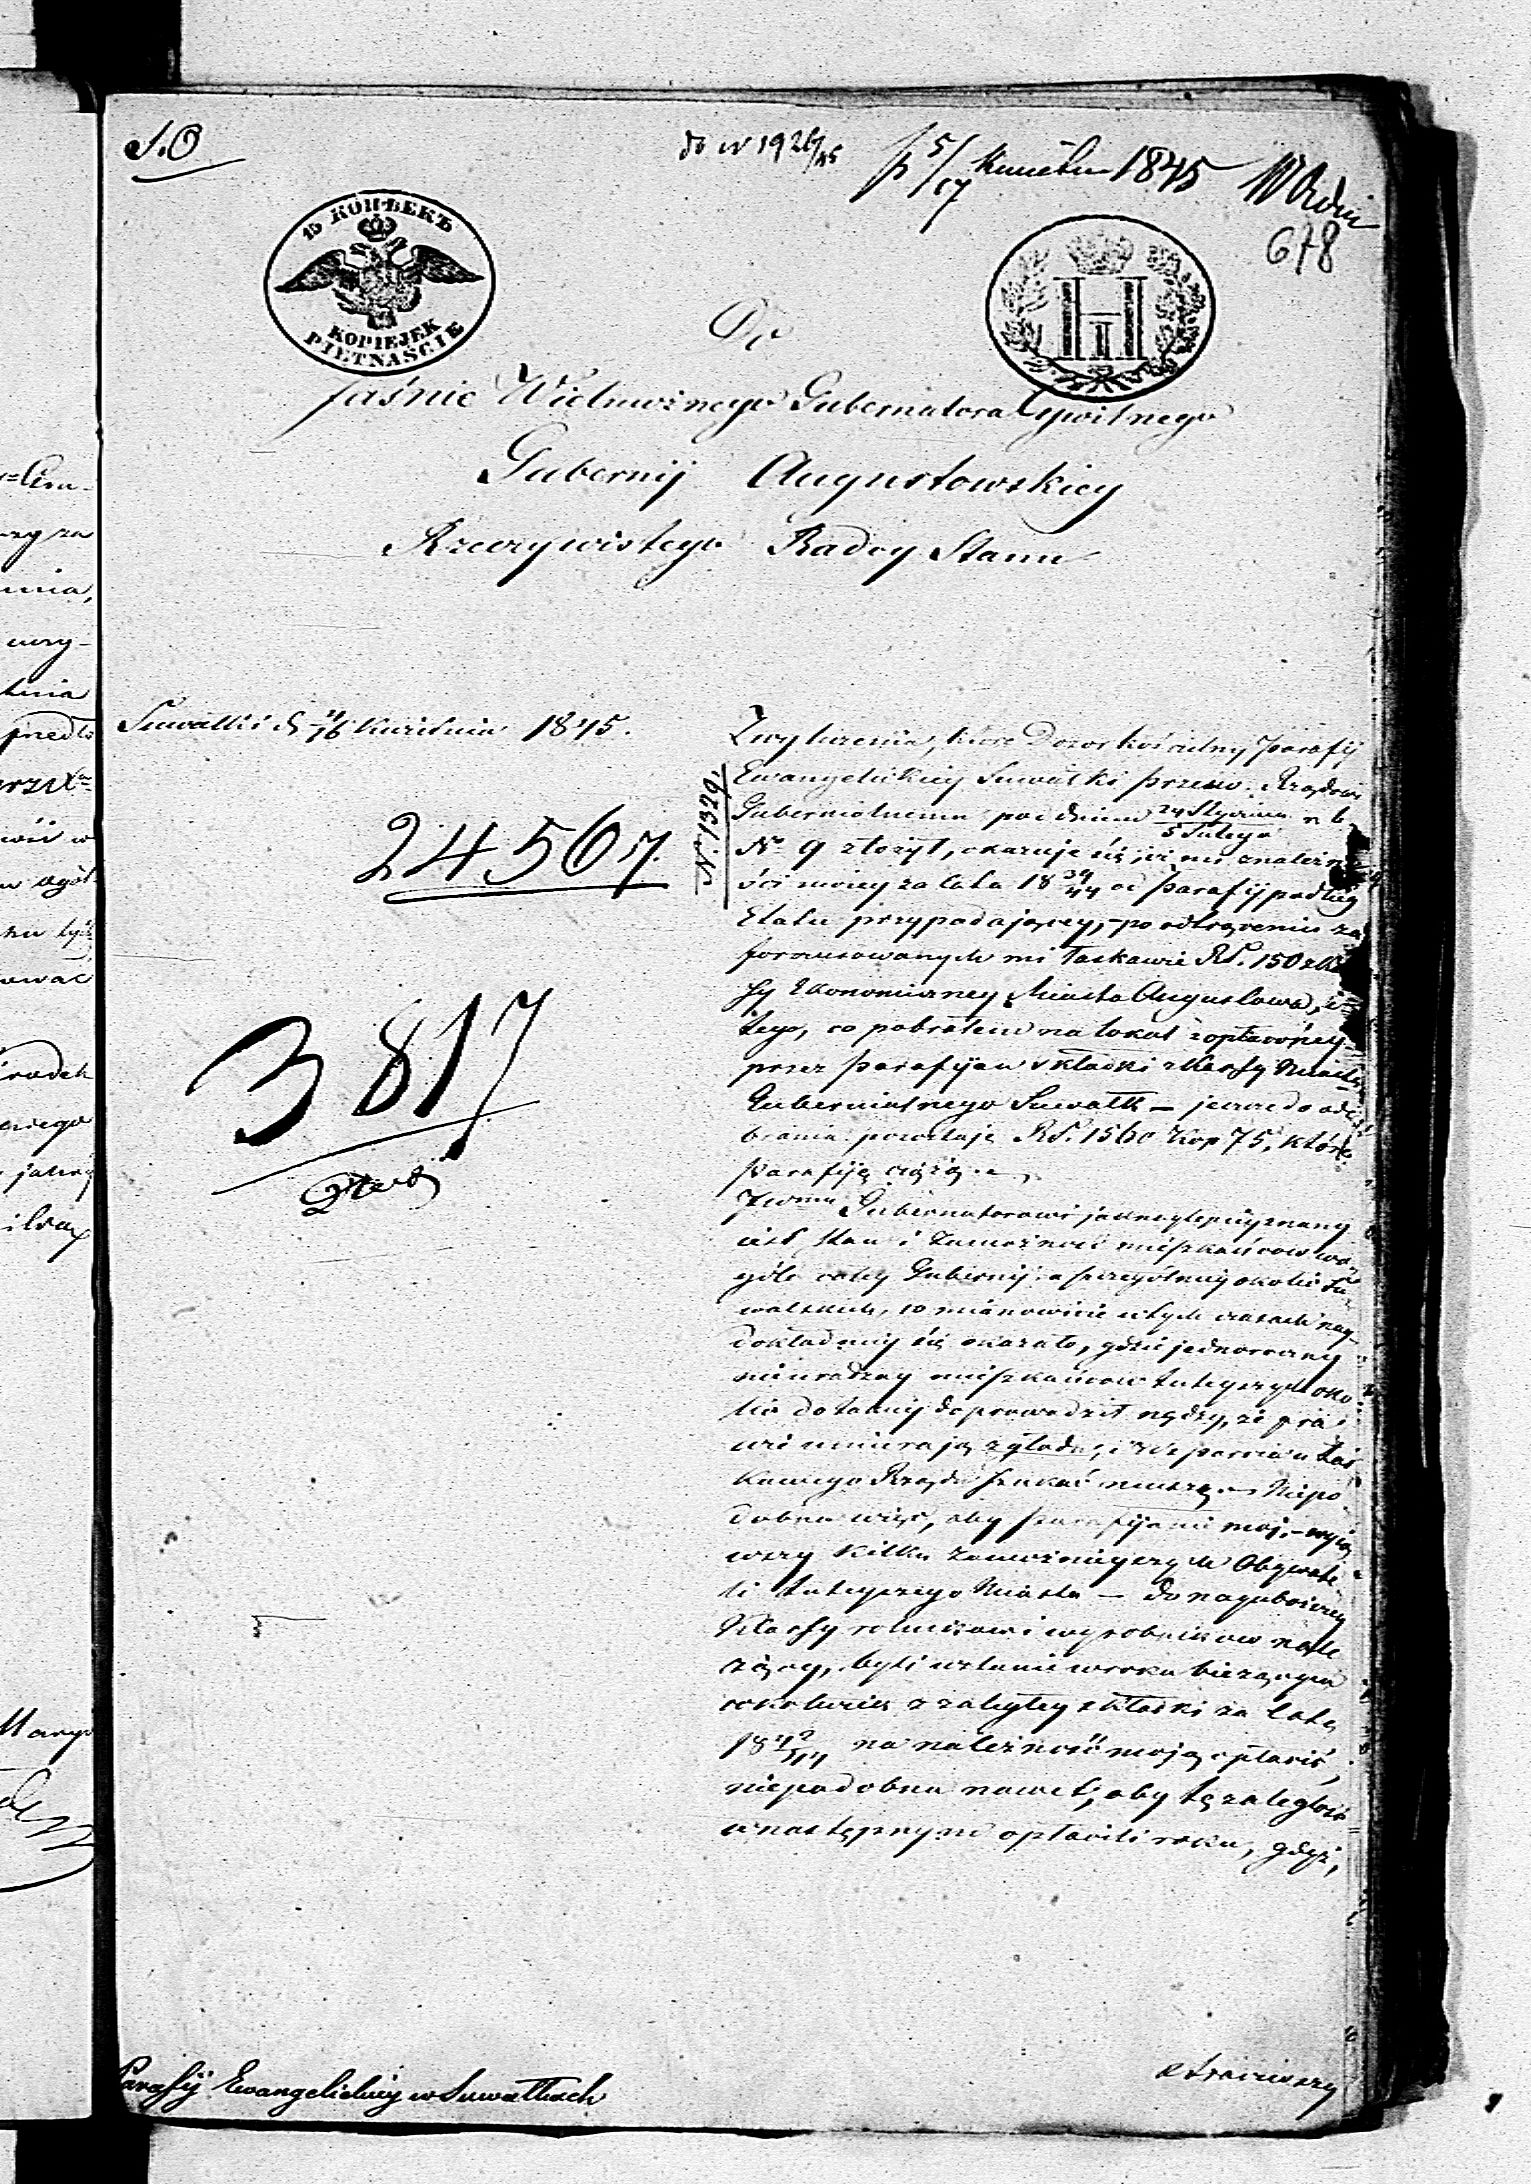 S.O
do N 1926/45
p 5/17 Kwietn 1845
678
15 КОПѢЕКЪ
KOPIEJEK
PIĘTNAŚCIE
Do
Jaśnie Wielmożnego Gubernatora Cywilnego
Gubernij Augustowskiey
Rzeczywistego Radcy Stanu
Suwałki d. 4/16 Kwietnia 1845.
24567.
3817
N. 1329.
Z wyliczenia, które Dozor kościelny Parafij
Ewangelickiey Suwałki przesw. Rządowi
Gubernialnemu pod dniem 24 Stycznia/5 Lutego r. b.
No 9 złożył, okazuje się, iż mi z należno
ści moiey za lata 18 39/44 od Parafij podług
Etatu przypadającey, - po odtrąceniu za
forszusowanych mi łaskawie RS. 150 z Ka
ssy Ekonomiczney Miasta Augustowa, i
tego, co pobrałem na tokat opłaconey
przez Parafijan składki z Kassy Miasta
Gubernialnego Suwałk — jeszcze do ode
brania pozostaje RS. 1560 kop 75, które
Parafiją ciążą. —
JWmu Gubernatorowi jaknaylepiey znany
iest stan i zamożność mieszkańcow wo
góle całey Gubernij, a szczególniey okolic Su
walskich, co mianowicie w tych czasach nay
dokładniey się okazało, gdzie jednoroczny
nieurodzay mieszkańcow tuteyszych oko
lic do takiey doprowadził nędzy, że pra
wie umierają z głodu, i wsparcia u łas
kawego Rządu szukać muszą. — Niepo
dobna więc, aby Parafijanie moi, - wyią
wszy kilku zamożnieyszych Obywate
li tuteyszego Miasta — do nayuboższey
Klassy rolnikow i wyrobnikow nale
żący, byli w stanie w roku bieżącym
cokolwiek z zaległey składki za lata
18 42/44 na należność moją opłacić,
niepodobna nawet, aby tę zaległość
w następnym opłacili roku, gdyż,
Parafij Ewangelickiey w Suwałkach